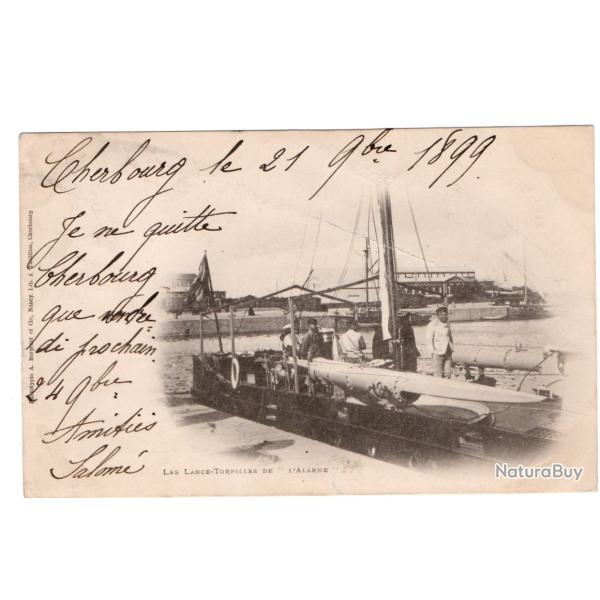 Cherbourg le 21 9bre 1899
Je ne quitte
Cherbourg
que vendre
di prochain
24 9bre
Amitiés
Salomé
LES LANCE-TORPILLES DE " L'ALARME "
Phototypie A. Bergeret et Cie, Nancy. Lib. Cherbourg
NaturaBuy